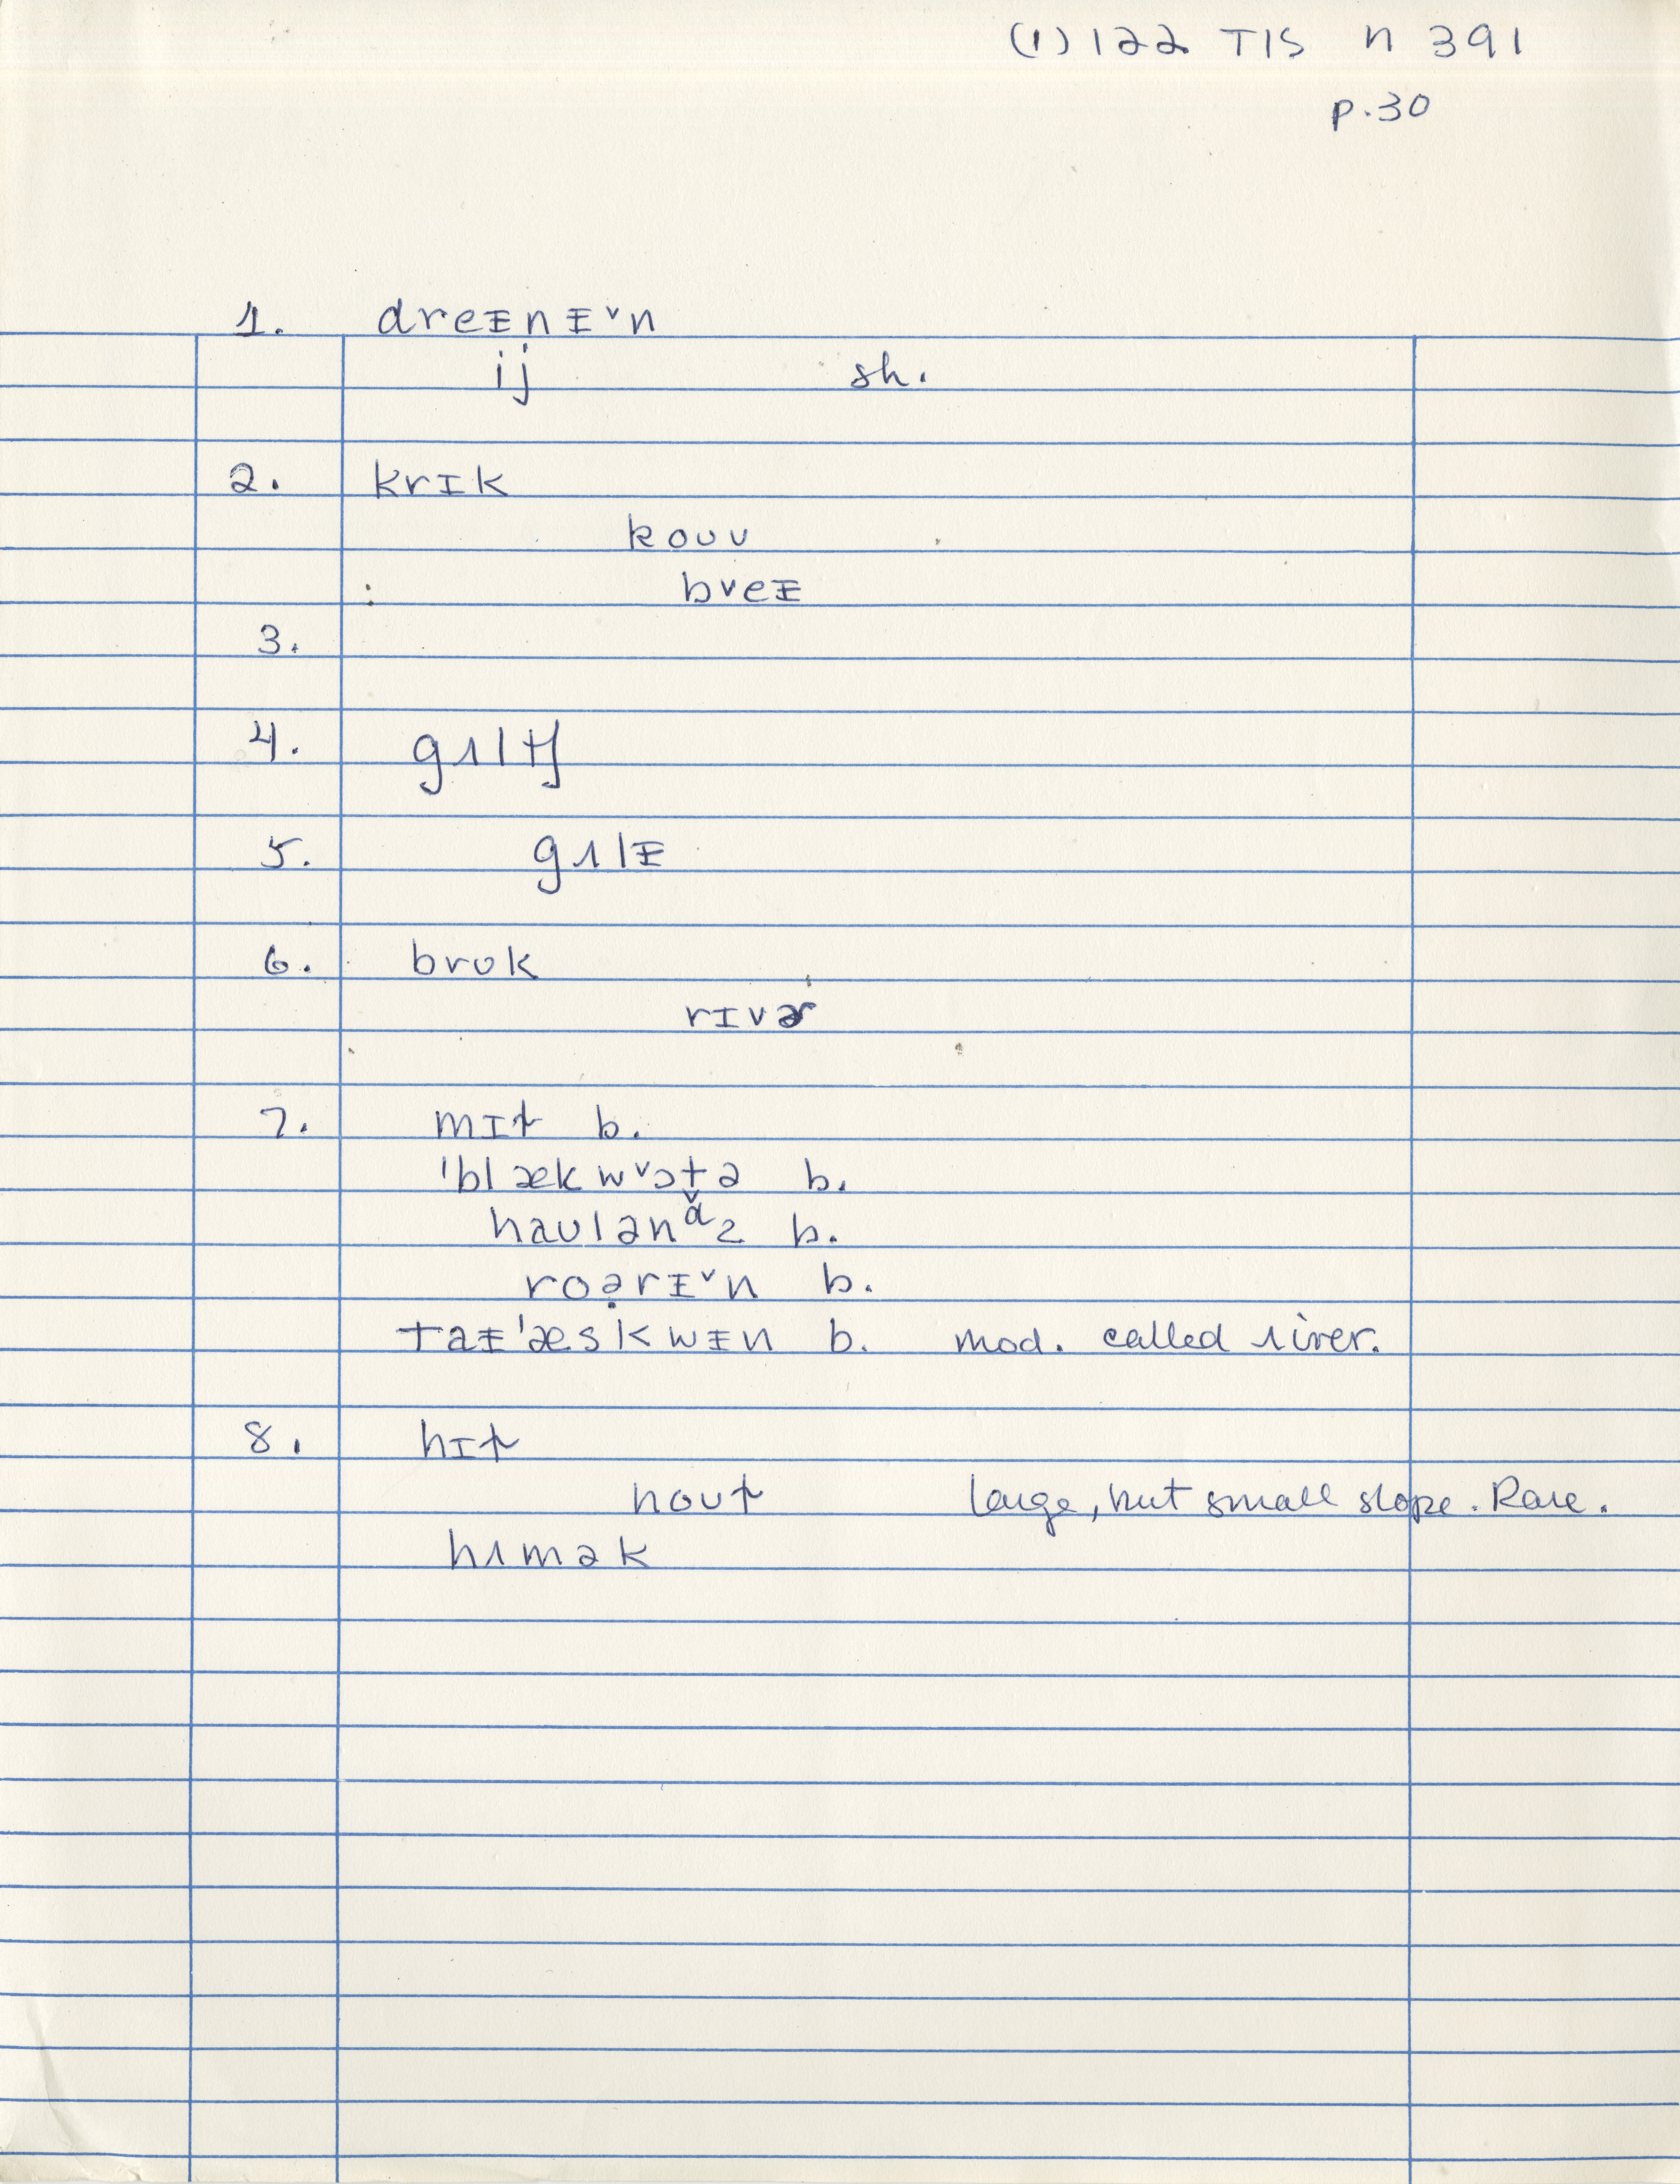 (1) 122 TIS n 391
p. 30
1. dreᵻnᵻ˅n
ij sh.
2. krɪk
kouv
bveᵻ
3.
4. gʌltʃ
5. gʌlᵻ
6. brʊk
rɪvɚ
7. mɪt b.
'blækw˅ɔt̬ə b.
haʊlənᵈz b.
roə̣rᵻ˅n b.
taᵻ'æskwᵻn b. mod. called river.
8. hɪɫ
noʊɫ large, but small slope. Rare.
hʌmək